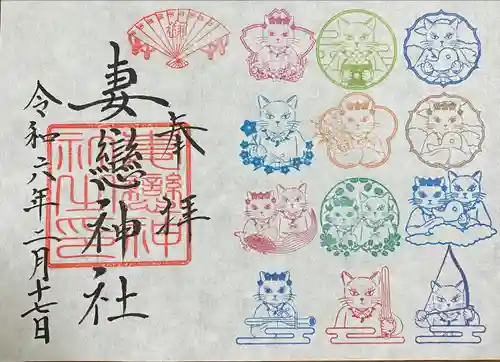 奉拝
妻戀神社
令和六年二月十七日